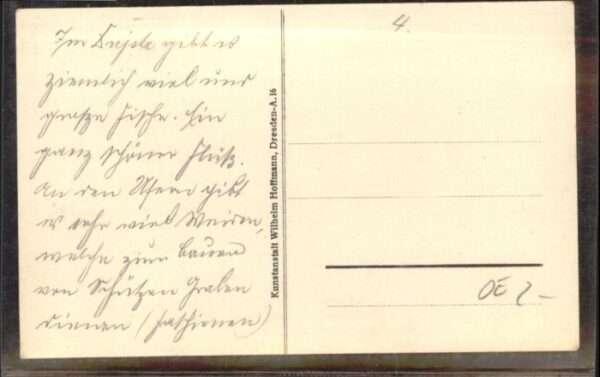 4.
Im Dujste gibt es
ziemlich viel und
große Fische. Ein
ganz schöner Fluß.
An den Ufern gibt
es sehr viel Weiden,
welche zum bauen
von Schützen Graben
dienen (Faschienen)
Kunstanstalt Wilhelm Hoffmann, Dresden-A. 16